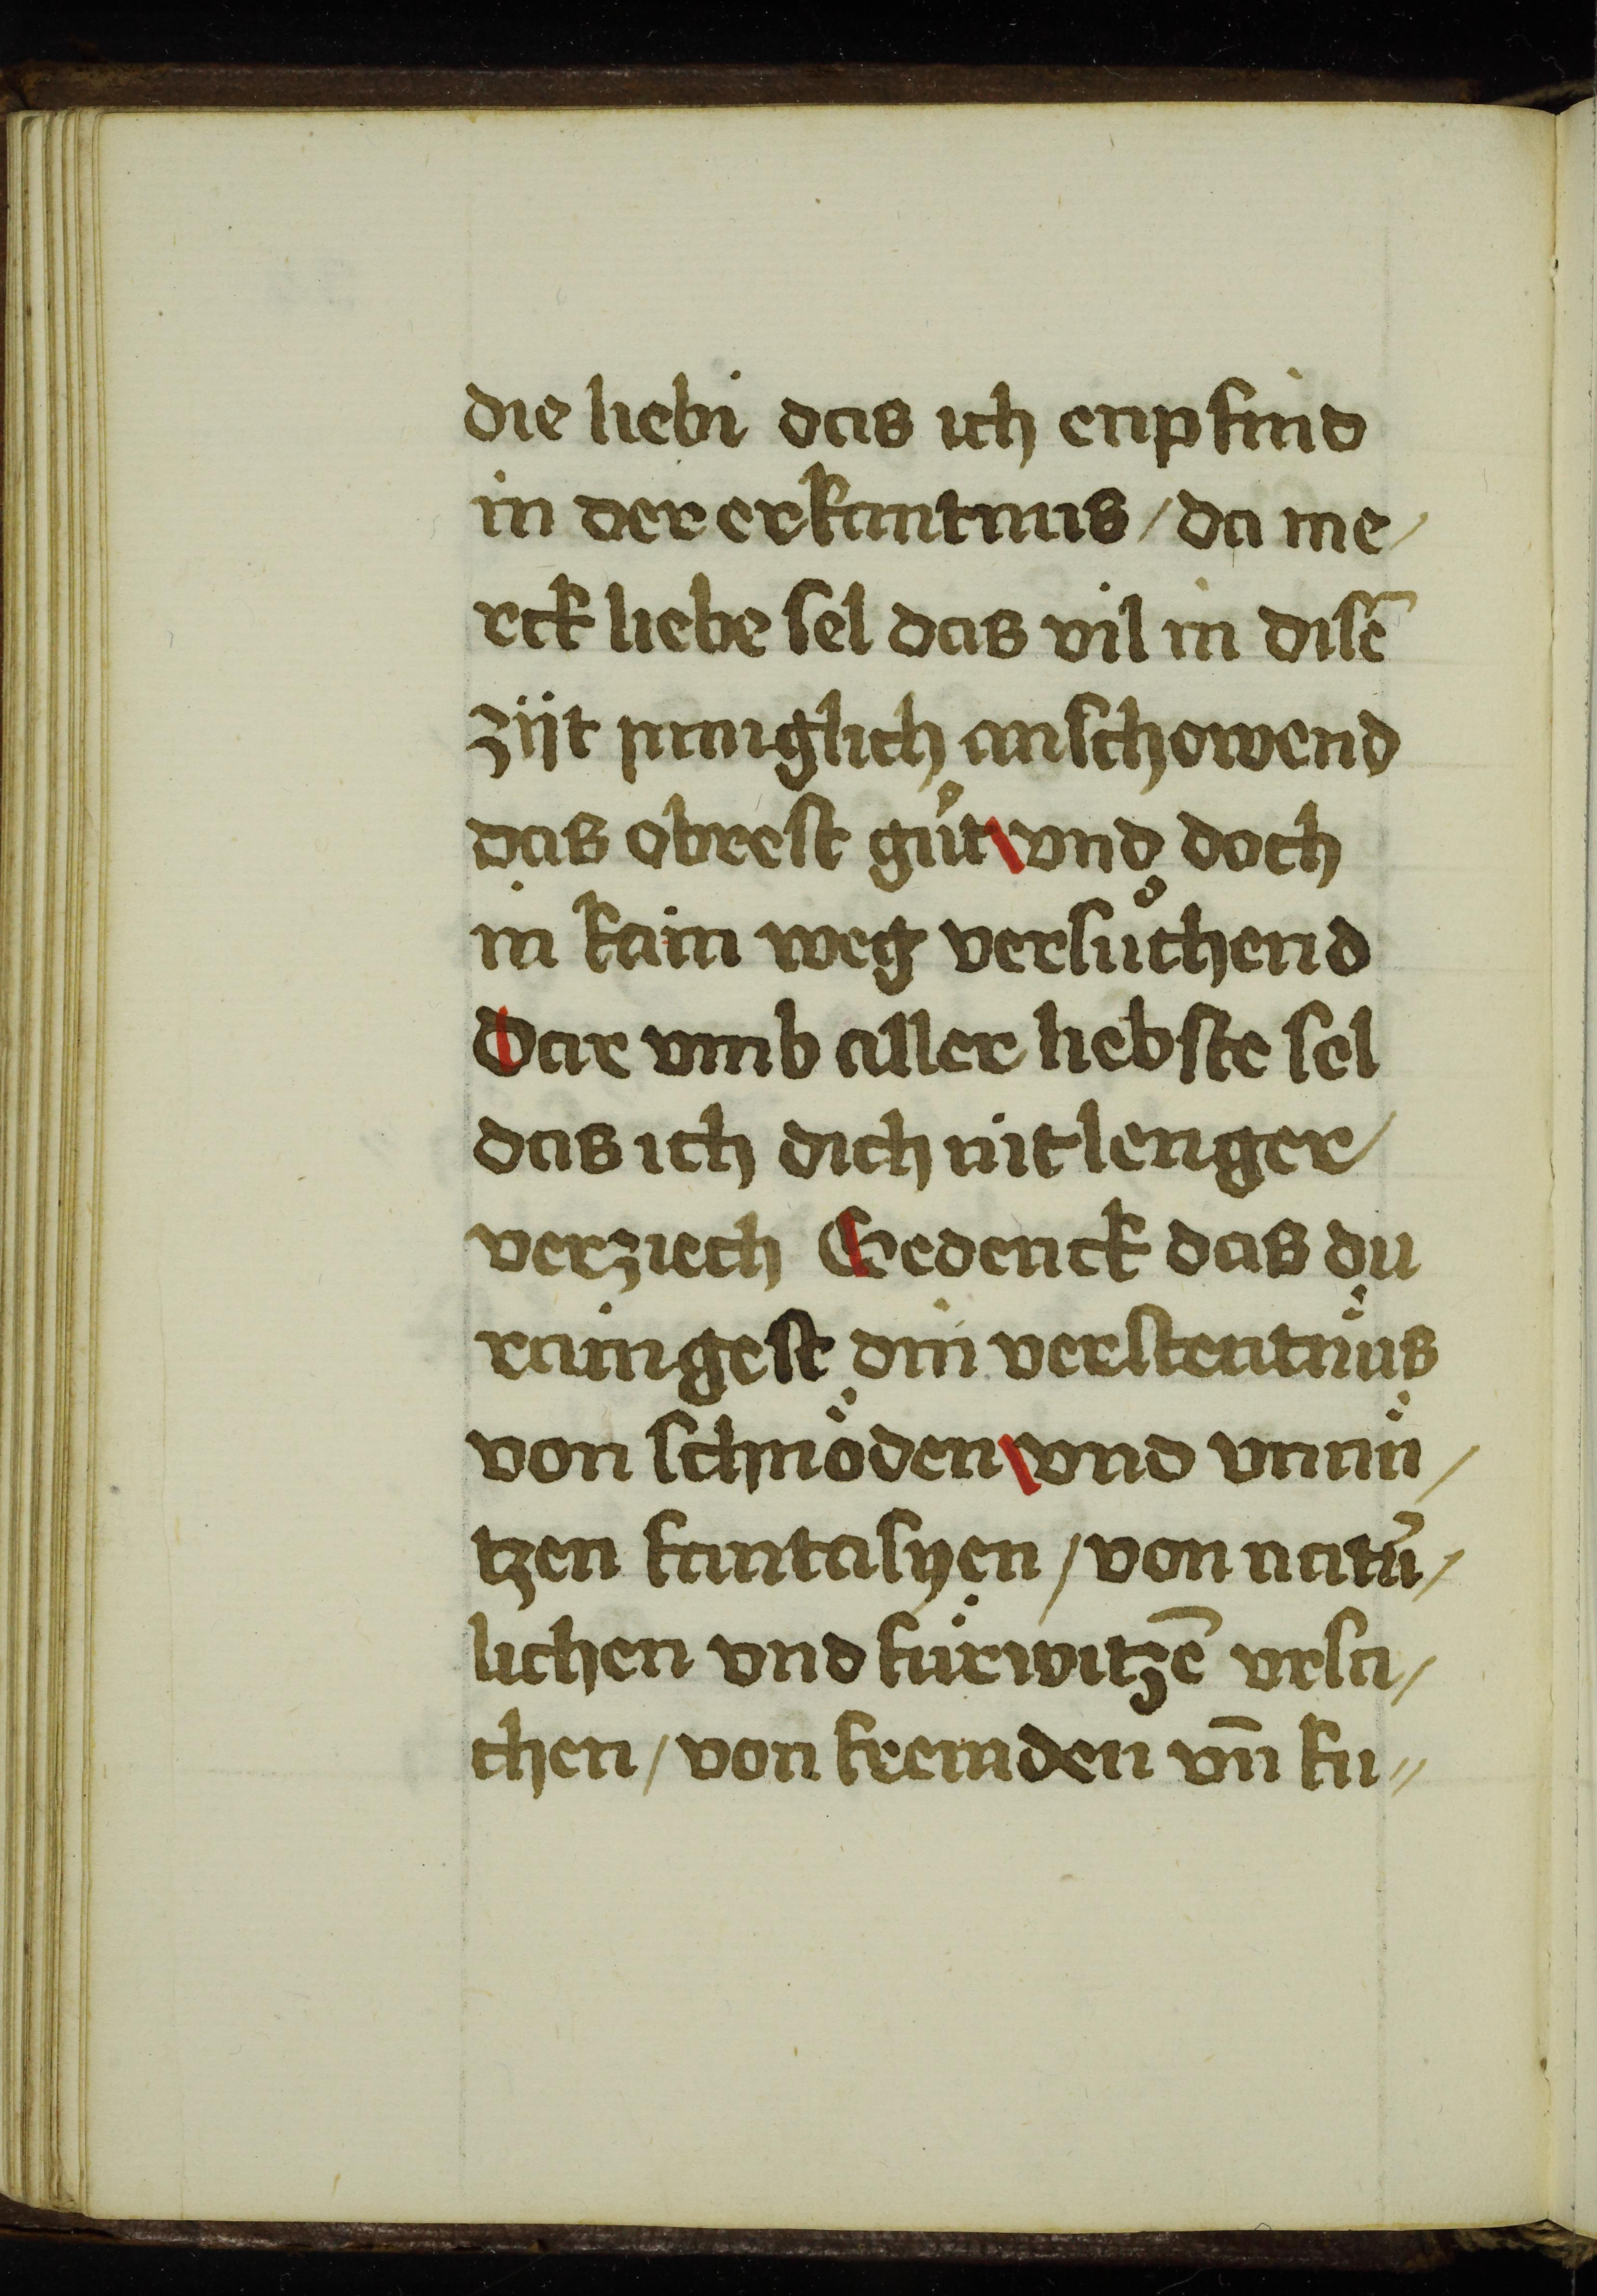 die liebi das ich enpfind
in der erkantnus / da me /
rck liebe sel das vil in disē
zijt ynniglich anschowend
das obrest gůt / vnd doch
in kain weg versůchend
Dar vmb aller liebste sel
das ich dich nit lenger /
verziech Gedenck das du
rainigest din verstentnüs
von schnöden / vnd vnnü /
tzen fantasyen / von natur̄ /
lichen vnd fürwitzē vrsa /
chen / von fremden vn̄ fu //